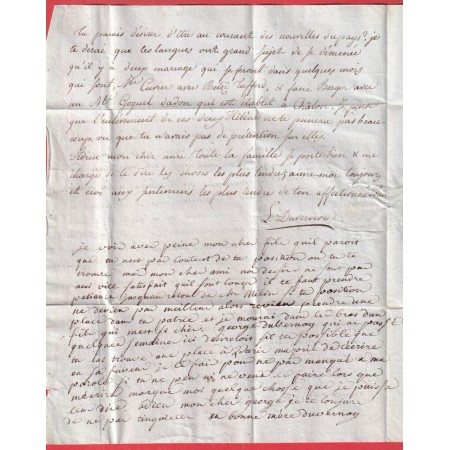 Tu parais désirer d'être au courant des nouvelles du pays; je
te dirai que les langues ont grand sujet de se démener
qu'il y a deux mariage qui se feront dans quelques mois
qui sont, Mr Cuvier avec
un Mr Goguel qui est établit à Je pense
que l'enlevement de ces deux ne te peinera pas beau-
coup vu que tu n'avais pas de prétention sur elles.
Adieu mon cher ami toute la famille se porte bien & me
charge de te dire les choses les plus tendres aime moi toujours
et croi aux sentimens les plus tendre de ton affectionné
L Duvernoy
je voir avec peine mon cher fils quil paroit
que tu nest pas content de ta position ou tu te
trouve mai mon cher ami non ne peu pas
aussi vite satisfait quil faut longer il te faut prendre
patiance jusquau mout de si ta position
ne devien pas meilleur alors revien prendre une
place dans ta patrie je mourai dans le bras dun
fils qui mest si cher. george duvernoy qui a passé
quelque ici desireroit sil est possible que
tu lui trouve une place à Paris ma prié de técrire
en sa faveur je te fait pour ne pas manqué a ma
parole si tu ne peu ne veux le faire lors que
mécrira marque moi quelque chosse que je puisse
leur dire adieu mon cher george je te conjure
de ne pas ta bonne mère duvernoy